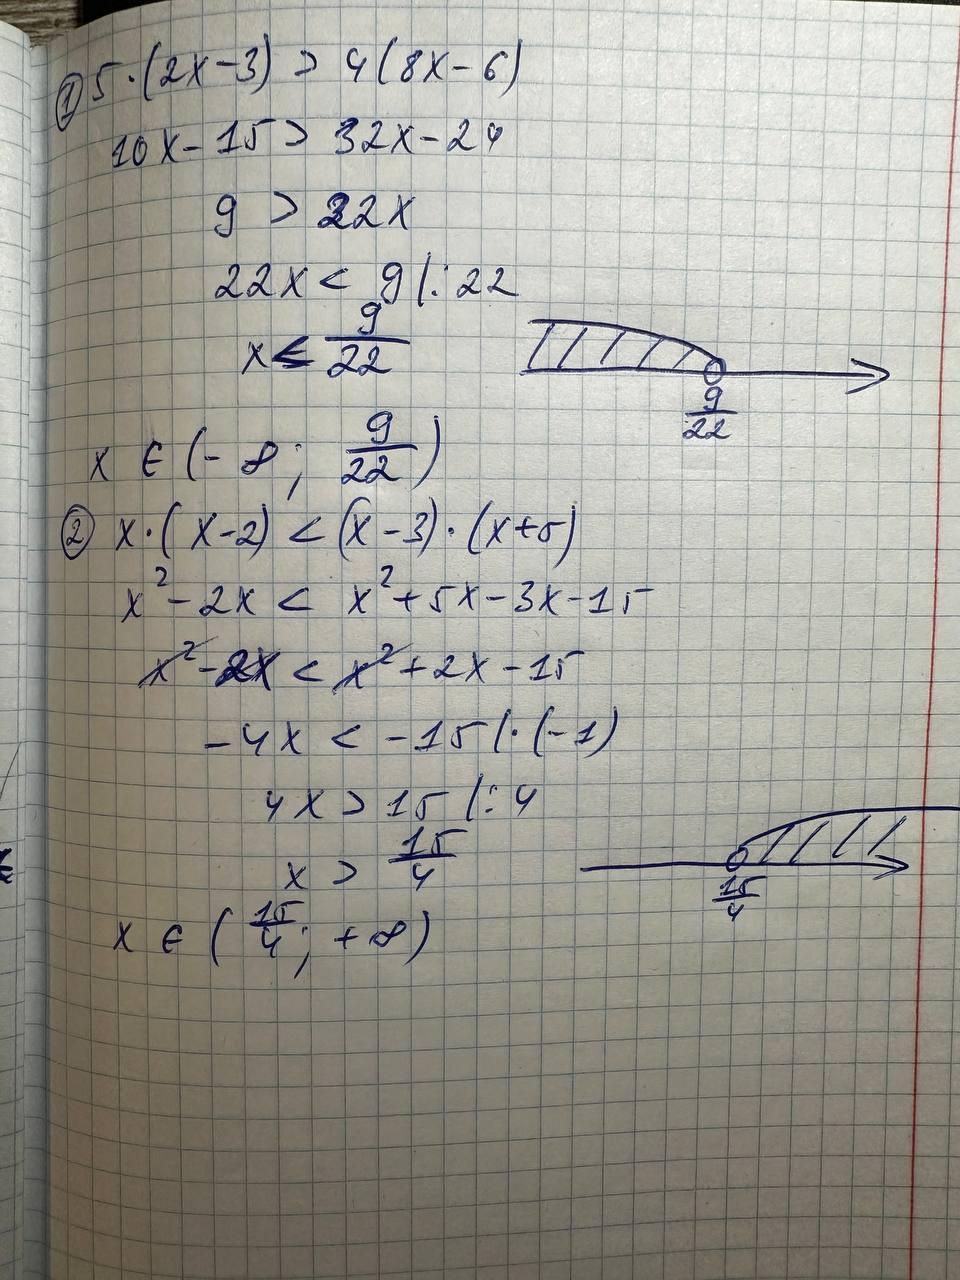 ① 5·(2x-3) > 4(8x-6)
10x-15 > 32x-24
9 > 22x
22x < 9 |:22
x < 9/22
9/22
x ∈ (-∞; 9/22)
② x·(x-2) < (x-3)·(x+5)
x²-2x < x²+5x-3x-15
x²-2x < x²+2x-15
-4x < -15 |·(-1)
4x > 15 |:4
x > 15/4
15/4
x ∈ (15/4; +∞)